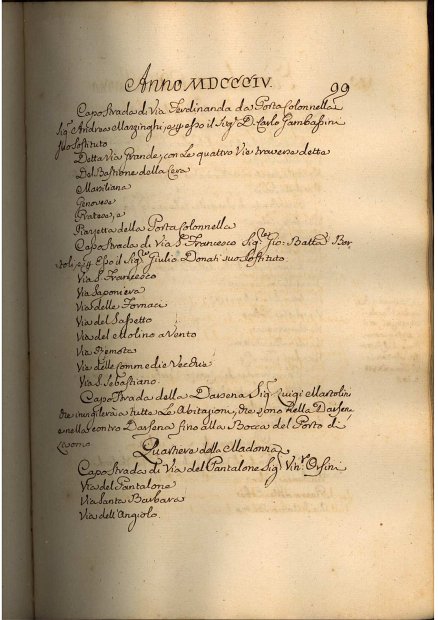 Anno MDCCCIV. 99
Capostrada di Via Ferdinanda da Porta Colonnella
Sig.r Andrea Marzinghi, e p esso il Sig.r D. Carlo Gambassini
suo Sostituto
Detta Via Grande, con Le quattro Vie traverse dette
Del Bastione della Cera
Marsiliana
Genovese
Pratese, e
Piazzetta della Porta Colonnella
Capostrada di Via S. Francesco Sig.r Gio: Batta Bar-
toli, e p Esso il Sig.r Giulio Donati suo Sostituto
Via S. Francesco
Via Saponiera
Via delle Fornaci
Via del Sassetto
Via del Molino a Vento
Via Remota
Via delle Commedie Vecchie
Via S. Sebastiano
Capostrada della Darsena Sig.r Luigi Bartolini
che invigilerà a tutte Le Abitazioni, che sono nella Darsena
e nella contro Darsena fino alla Bocca del Porto di
Livorno
Quartiere della Madonna
Capostrada di Via del Pantalone Sig.r Vin.o Orsini
Via del Pantalone
Via Santa Barbara
Via dell'Angiolo.